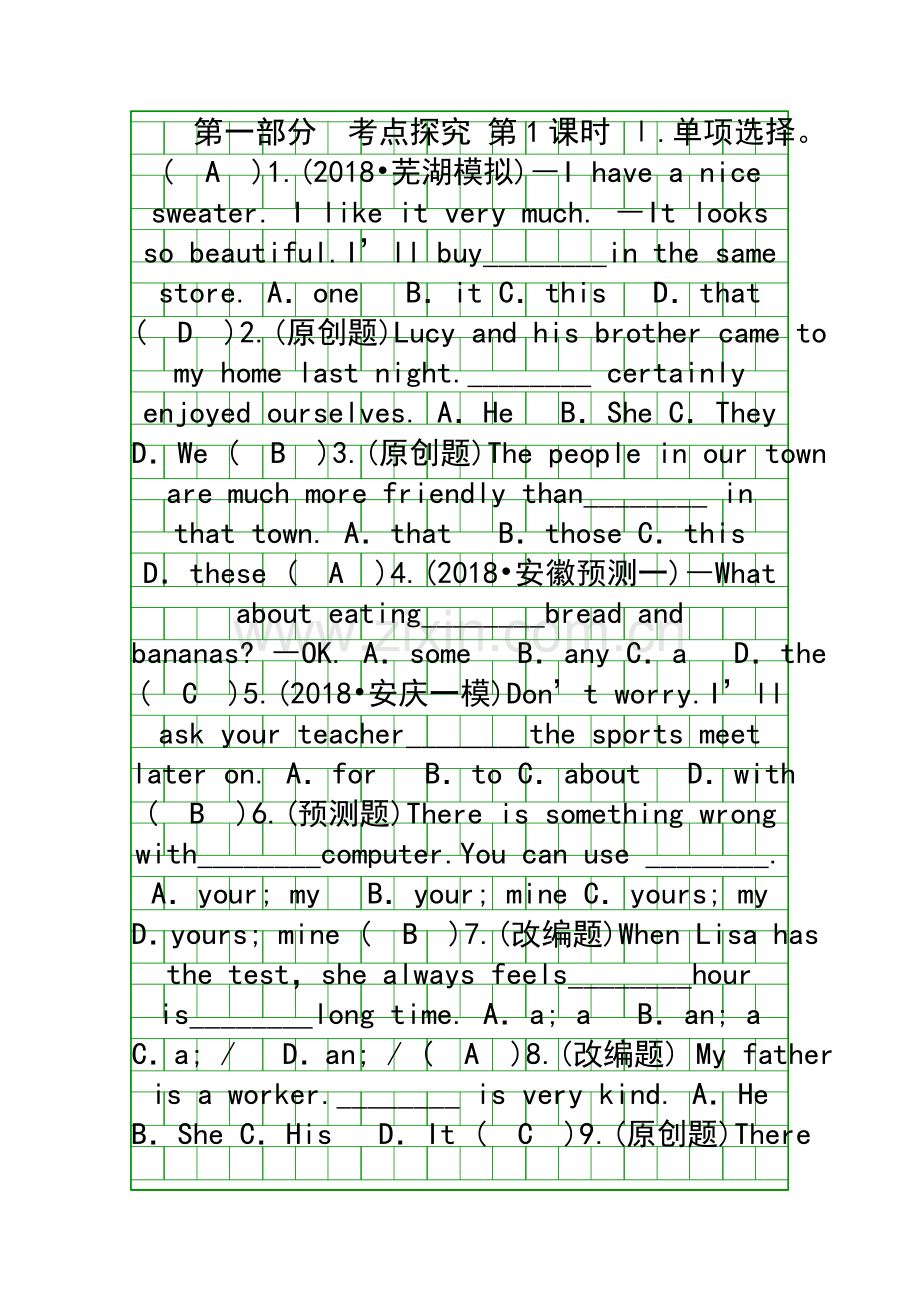 第一部分 考点探究 第1课时 Ⅰ.单项选择。
( A )1.(2018•芜湖模拟)—I have a nice
sweater. I like it very much. —It looks
so beautiful.I’ll buy________in the same
store. A．one B．it C．this D．that
( D )2.(原创题)Lucy and his brother came to
my home last night.________ certainly
enjoyed ourselves. A．He B．She C．They
D．We ( B )3.(原创题)The people in our town
are much more friendly than________ in
that town. A．that B．those C．this
D．these ( A )4.(2018•安徽预测一)—What
about eating________bread and
bananas? —OK. A．some B．any C．a D．the
( C )5.(2018•安庆一模)Don’t worry.I’ll
ask your teacher________the sports meet
later on. A．for B．to C．about D．with
( B )6.(预测题)There is something wrong
with________computer.You can use ________.
A．your; my B．your; mine C．yours; my
D．yours; mine ( B )7.(改编题)When Lisa has
the test，she always feels________hour
is________long time. A．a; a B．an; a
C．a; / D．an; / ( A )8.(改编题) My father
is a worker.________ is very kind. A．He
B．She C．His D．It ( C )9.(原创题)There
www.zixin.com.cn